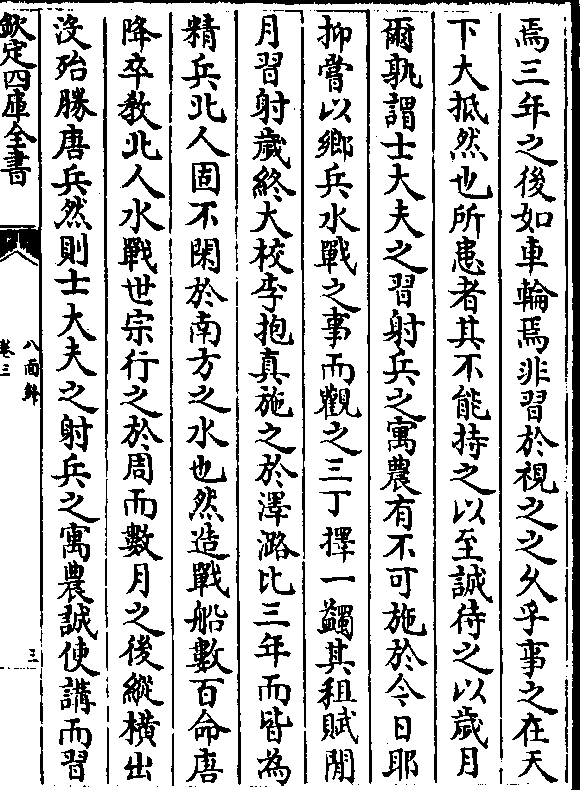 焉三年之後如車輪焉非習於視之之久乎事之在天
下大抵然也所患者其不能持之以至誠待之以歳月
爾孰謂士大夫之習射兵之寓農有不可施於今日耶
抑嘗以鄉兵水戰之事而觀之三丁擇一蠲其租賦閒
月習射歳終大校李抱真施之於澤潞比三年而皆為
精兵北人固不閑於南方之水也然造戰船數百命唐
降卒教北人水戰世宗行之於周而數月之後縱橫出
没殆勝唐兵然則士大夫之射兵之寓農誠使講而習
欽定四庫全書
八面鋒
卷三
三